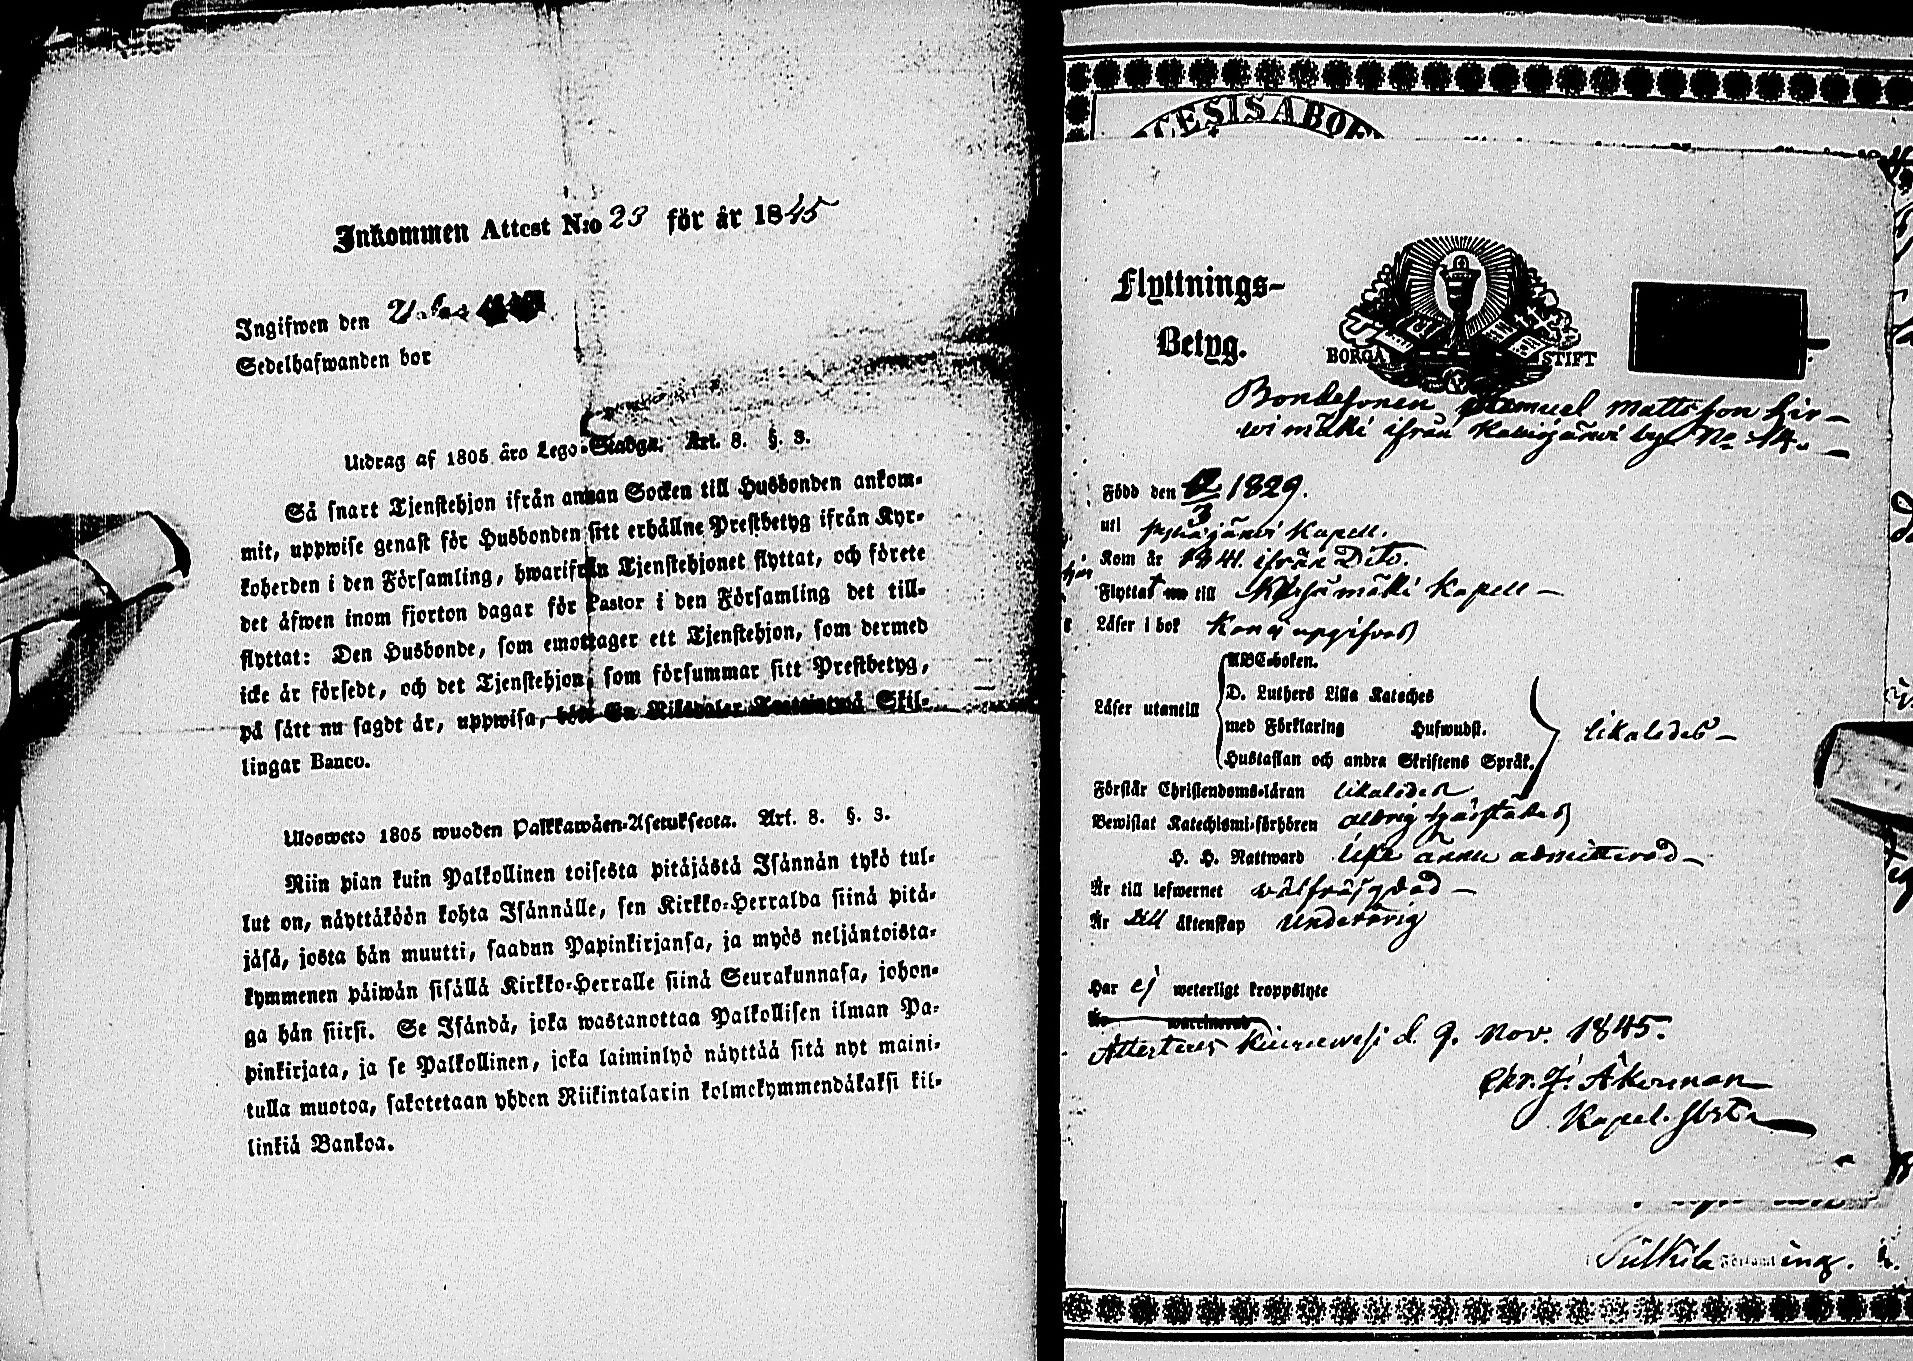 Inkommen Attest N:o 23 för år 1845
Ingifwen den
Sedelhafwanden bor
Utdrag af 1805 års Lego-Stadga. Art. 8. §. 3.
Så snart Tjenstehjon ifrån annan Socken till Husbonden ankom-
mit, uppwise genast för Husbonden sitt erhållne Prestbetyg ifrån Kyr-
koherden i den Församling, hwarifrån Tjenstehjonet flyttat, och förete
det äfwen inom fjorton dagar för Pastor i den Församling det till-
flyttat: Den Husbonde, som emottager ett Tjenstehjon, som dermed
icke är försedt, och det Tjenstehjon, som försummar sitt Prestbetyg,
på sätt nu sagdt är, uppwisa, böte En Riksdaler Trettiotwå Skil-
lingar Banco.
Ulosweto 1805 wuoden Palkkawäen-Asetuksesta. Art. 8. §. 3.
Niin pian kuin Palkollinen toisesta pitäjästä Isännän tykö tul-
lut on, näyttäköön kohta Isännälle, sen Kirkko-Herralda siinä pitä-
jäsä, josta hän muutti, saadun Papinkirjansa, ja myös neljäntoista-
kymmenen päiwän sisällä Kirkko-Herralle siinä Seurakunnasa, johon-
ga hän siirsi. Se Isändä, joka wastanottaa Palkollisen ilman Pa-
pinkirjata, ja se Palkollinen, joka laiminlyö näyttää sitä nyt maini-
tulla muotoa, sakotetaan yhden Riikintalarin kolmekymmendäkaksi kil-
linkiä Bankoa.
CESIS ABOE
Flyttnings-
Betyg.
BORGÅ STIFT
Bondesonen Samuel Mattsson Hir-
wimäki ifrån Kolusjärwi by No 14.
Född den 12/3 1829.
uti Kapell.
Kom år 1841. ifrån Dito.
Flyttat nu till Kärsämäki Kapell
Läser i bok Kan ej uppgifvas
ABC-boken.
D. Luthers Lilla Kateches
Läser utantill
med Förklaring Hufwudst.
likaledes
Hustaflan och andra Skriftens Språk.
Förstår Christendoms-läran likaledes
Bewistat Katechismi-förhören aldrig
H. H. Nattward icke ännu admitterad
Är till lefwernet wälfräjdad
Är till äktenskap underårig
Har ej weterligt kroppslyte
Är waccinerad
Attesteras Kiuruwesi d. 9. Nov. 1845.
Chr. J. Åkerman
Kapel.
Pulkila Församling.